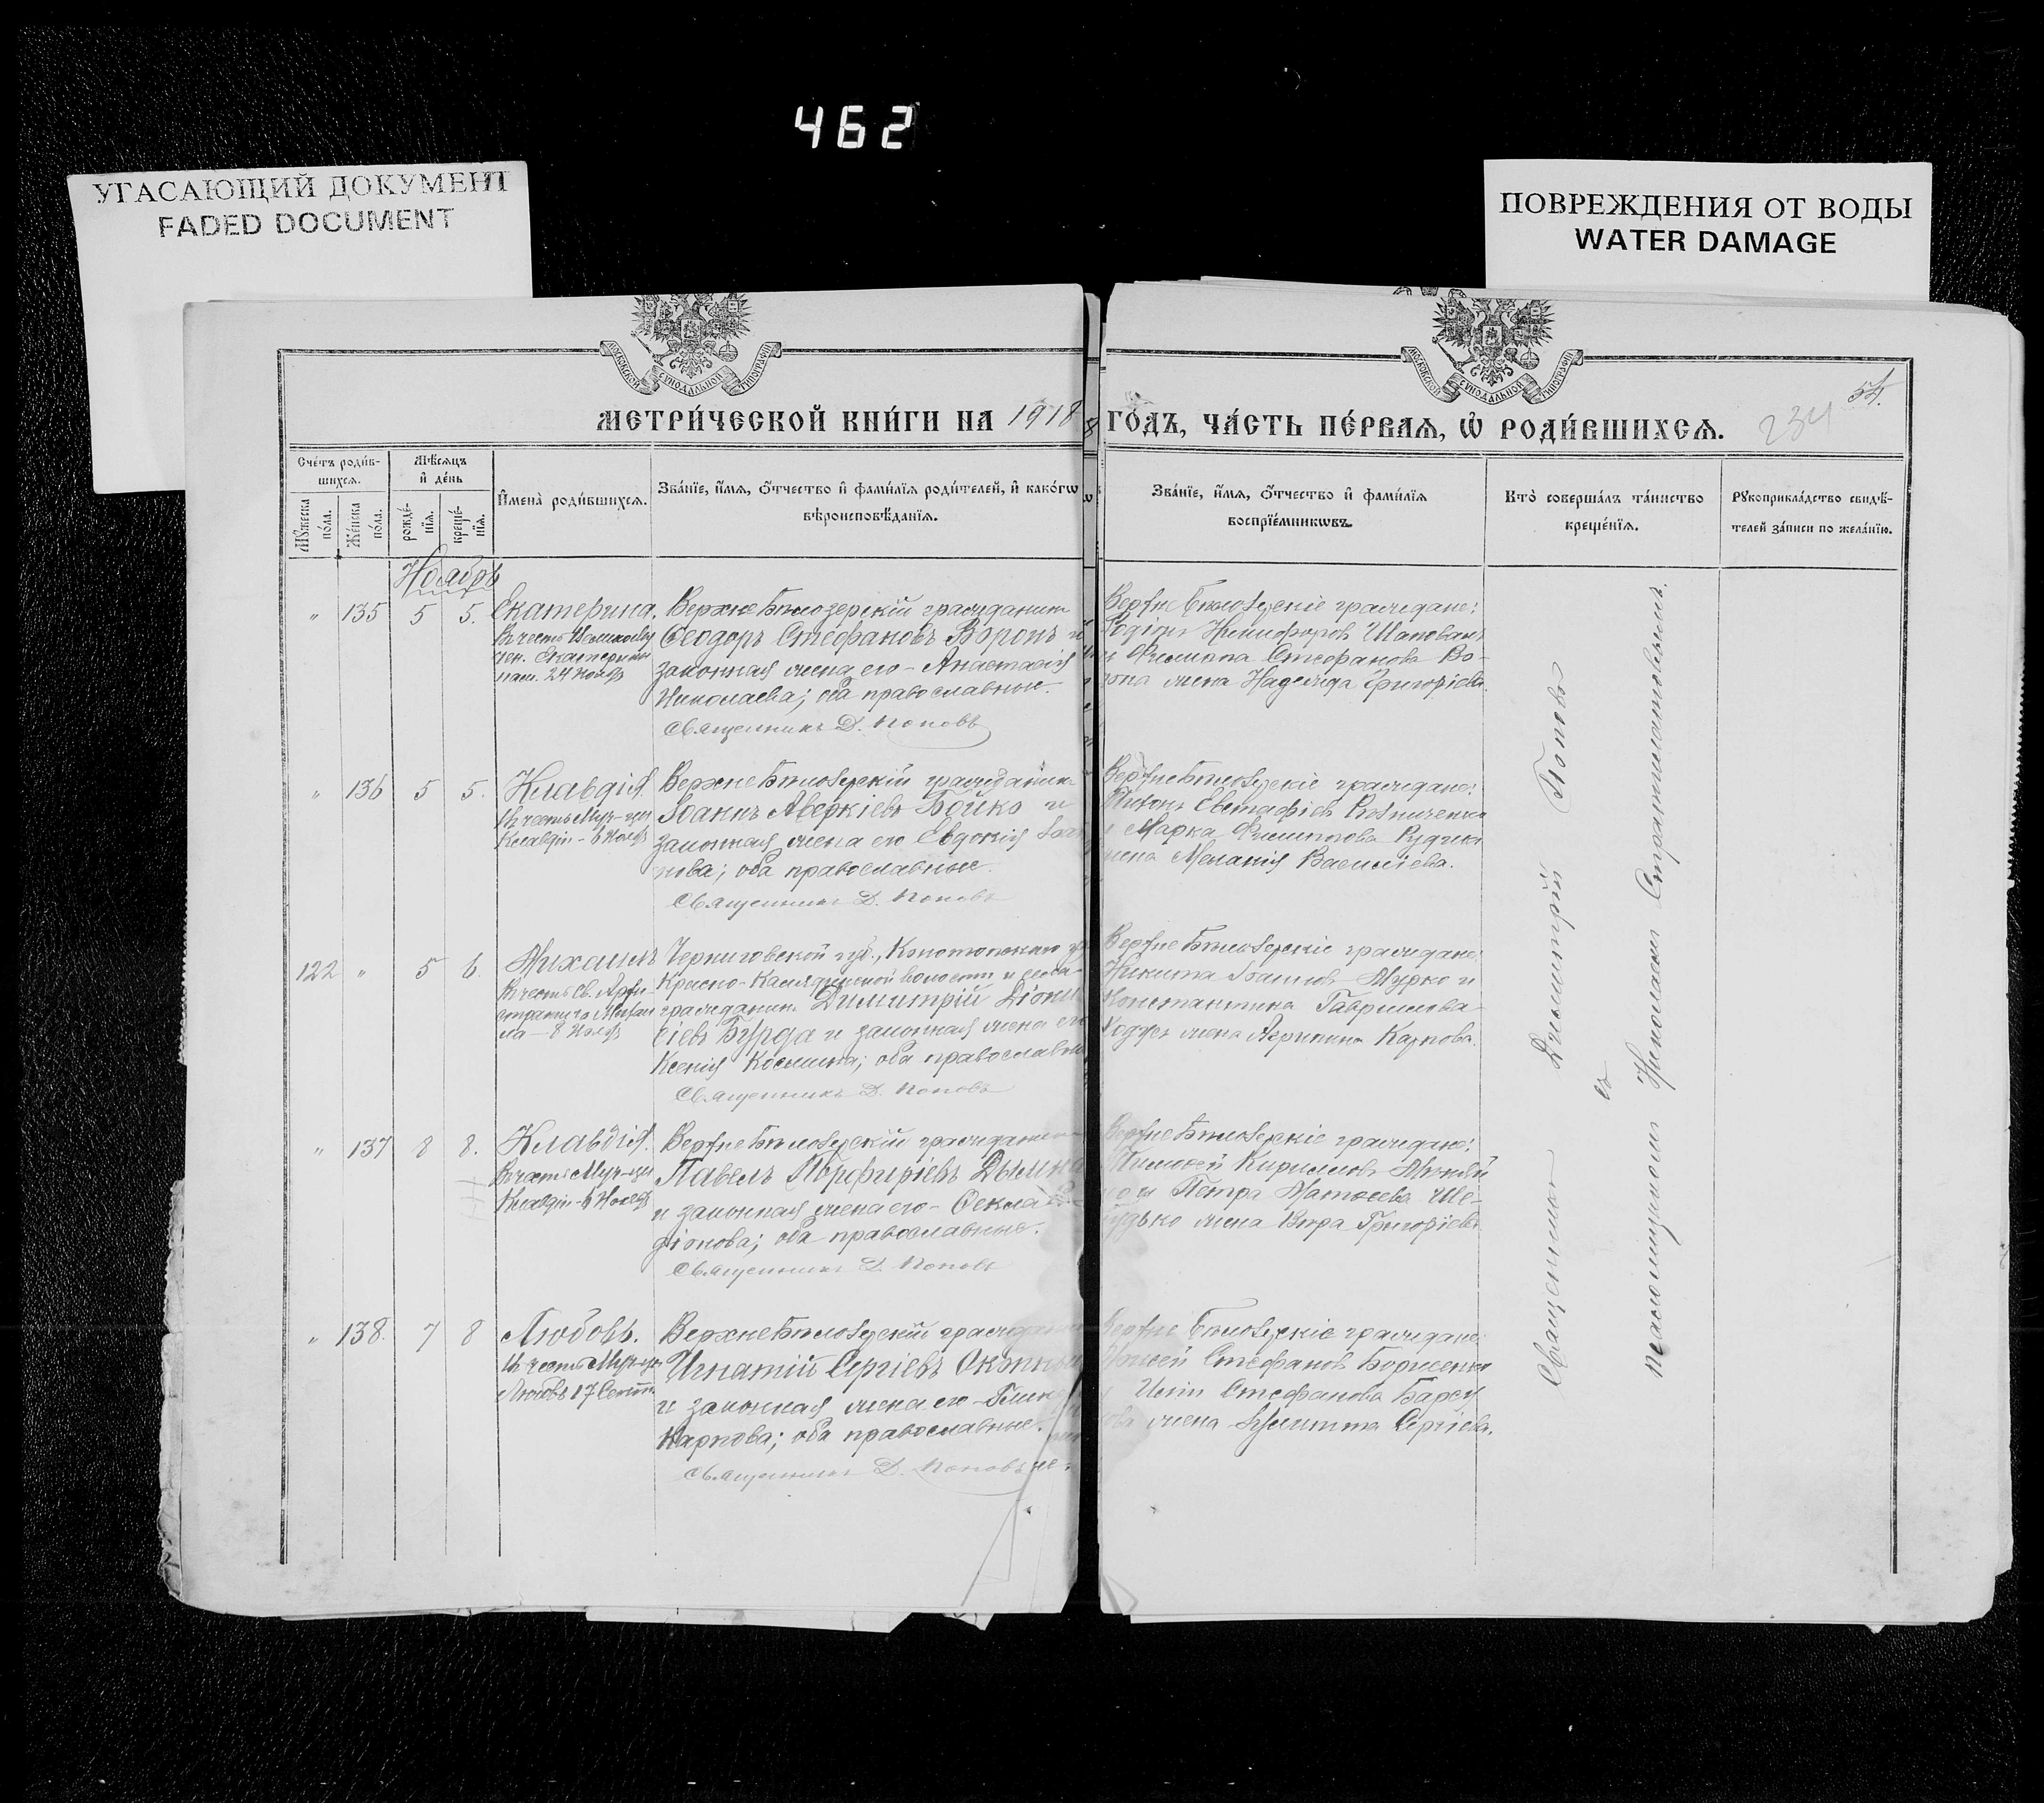 462
УГАСАЮЩИЙ ДОКУМЕНТ
FADED DOCUMENT
ПОВРЕЖДЕНИЯ ОТ ВОДЫ
WATER DAMAGE
МОСКОВСКОЙ СѴНОДАЛЬНОЙ ТИПОГРАФІИ
МОСКОВСКОЙ СѴНОДАЛЬНОЙ ТИПОГРАФІИ
МЕТРИ́ЧЕСКОЙ КНИ́ГИ НА 1918
ГО́ДЪ, ЧА́СТЬ ПЕ́РВАѦ, Ѡ҆ РОДИ́ВШИХСѦ.
54.
234
Сче́тъ роди́в-
шихсѧ.
Мꙋ́жеска
по́ла.
Же́нска
по́ла.
Мѣ́сѧцъ
и҆ де́нь
рожде́-
нїѧ.
креще́-
нїѧ.
И҆мена̀ роди́вшихсѧ.
Зва́нїе, и҆́мѧ, ѻ҆́тчество и҆ фами́лїѧ роди́телей, и҆ како́гѡ
вѣроисповѣ́данїѧ.
Зва́нїе, и҆́мѧ, ѻ҆́тчество и҆ фами́лїѧ
воспрїе́мникѡвъ.
Кто̀ соверша́лъ та́инство
креще́нїѧ.
Рꙋкоприкла́дство свидѣ́-
телей за́писи по жела́нїю.
Ноябрь
" 135 5 5. Екатерина.
Въ честь
Екатерины
24 Нояб.
ВерхнеБѣлозерскій гражданинъ
Ѳеодоръ Стефановъ Воронъ и
законная жена его - Анастасія
Николаева; оба православные.
Священникъ Д. Поповъ
ВерхнеБѣлозерскіе граждане:
Родіонъ Никифоровъ Шаповалъ
и Филиппа Стефанова Во-
рона жена Надежда Григоріева.
" 136 5 5. Клавдія.
Въ честь Муч-цы
Клавдіи - 6 Нояб.
ВерхнеБѣлозерскій гражданинъ
Іоаннъ Аверкіевъ Бойко и
законная жена его Евдокія Іоан
нова; оба православные.
Священникъ Д. Поповъ
ВерхнеБѣлозерскіе граждане:
Евстафіевъ
и Марка Филиппова Рудика
жена Меланія Васильева.
122 " 5 6. Михаилъ
Въ честь Св. Архи-
стратига Михаи
ла - 8 Нояб.
Черниговской губ., Конотопскаго
волости и села-
гражданинъ Димитрій Діони
сіевъ Бурда и законная жена его
Ксенія Косьмина; оба православны
Священникъ Д. Поповъ
ВерхнеБѣлозерскіе граждане:
Никита Іоанновъ Мурко и
Константина Гавриилова
жена Агрипина Карпова.
" 137 8 8. Клавдія.
Въ честь Муч-цы
Клавдіи - 6 Нояб.
ВерхнеБѣлозерскій гражданинъ
Павелъ Порфиріевъ Дымна
и законная жена его - Ѳекла
діонова; оба православные.
Священникъ Д. Поповъ
ВерхнеБѣлозерскіе граждане:
Тимоѳей Кирилловъ
Петра Матѳеева Ше-
жена Вѣра Григоріева.
" 138. 7 8 Любовь.
Въ честь Муч-цы
Любовь 17 Сент.
ВерхнеБѣлозерскій граждани
Игнатій Сергіевъ
и законная жена его -
Карпова; оба православные.
Священникъ Д. Поповъ
ВерхнеБѣлозерскіе граждане:
Стефановъ Борисенко
Стефанова
жена Сергіева.
Священникъ Димитрій Поповъ
съ
псаломщикомъ Николаемъ